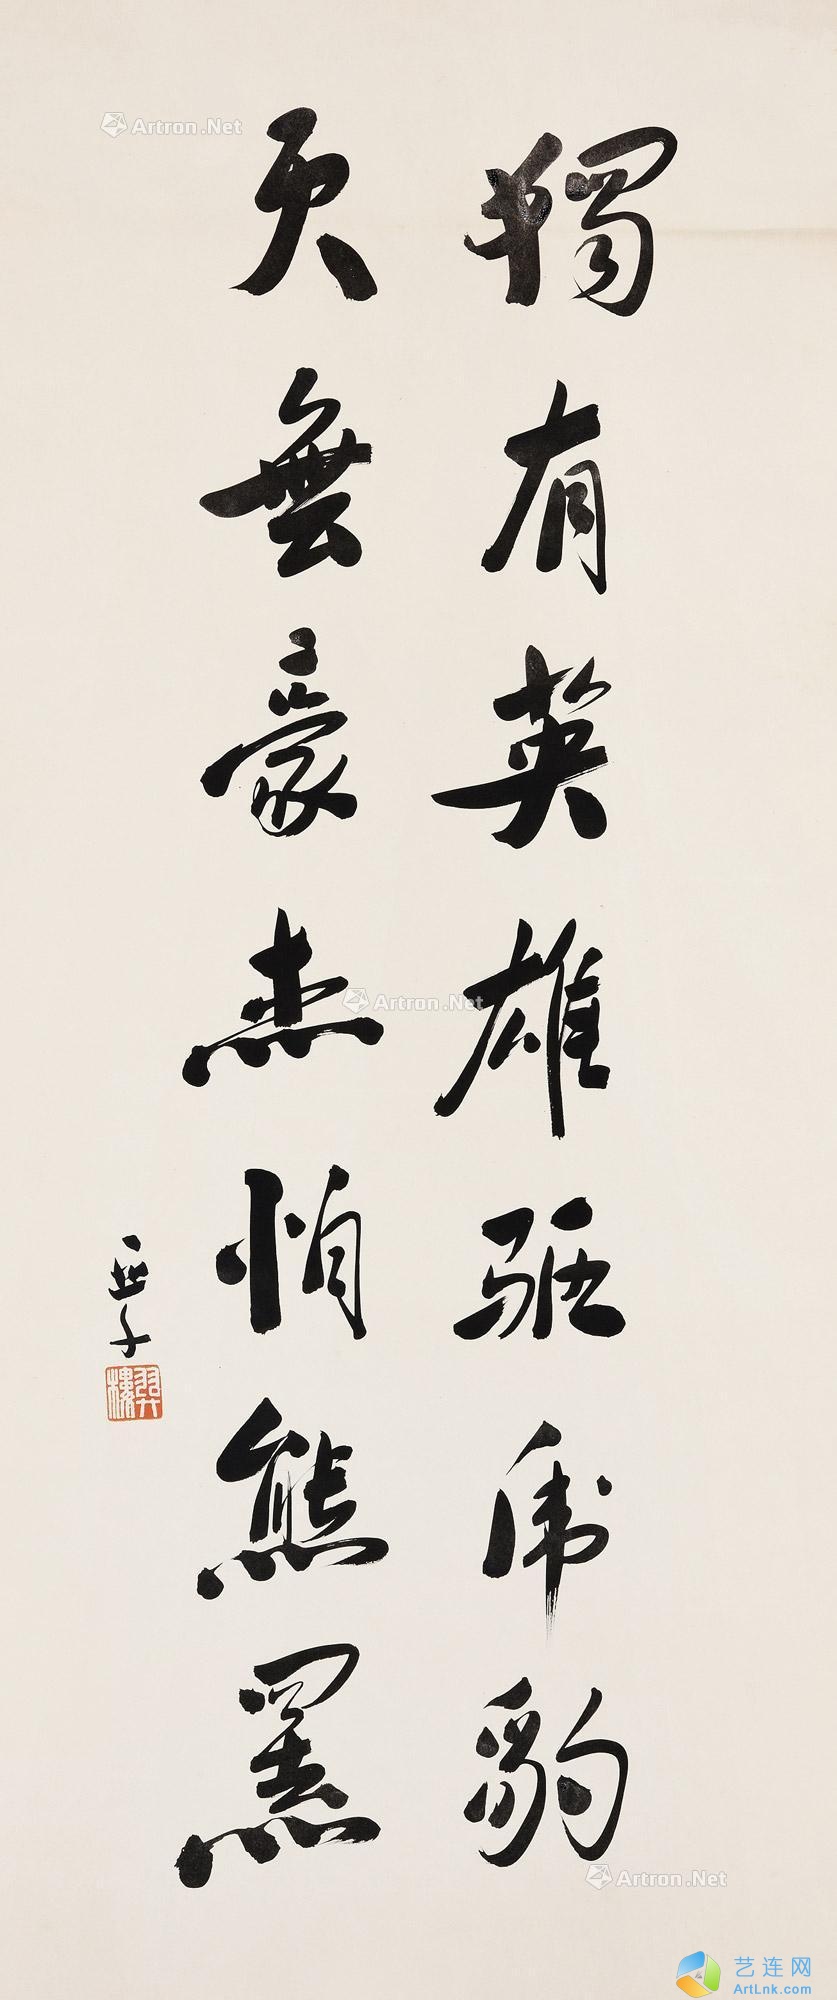 獨有英雄驅虎豹
更無豪杰怕熊羆
亞子
羿樓
Artron.Net
Artron.Net
Artron.Net
艺连网
ArtLnk.com